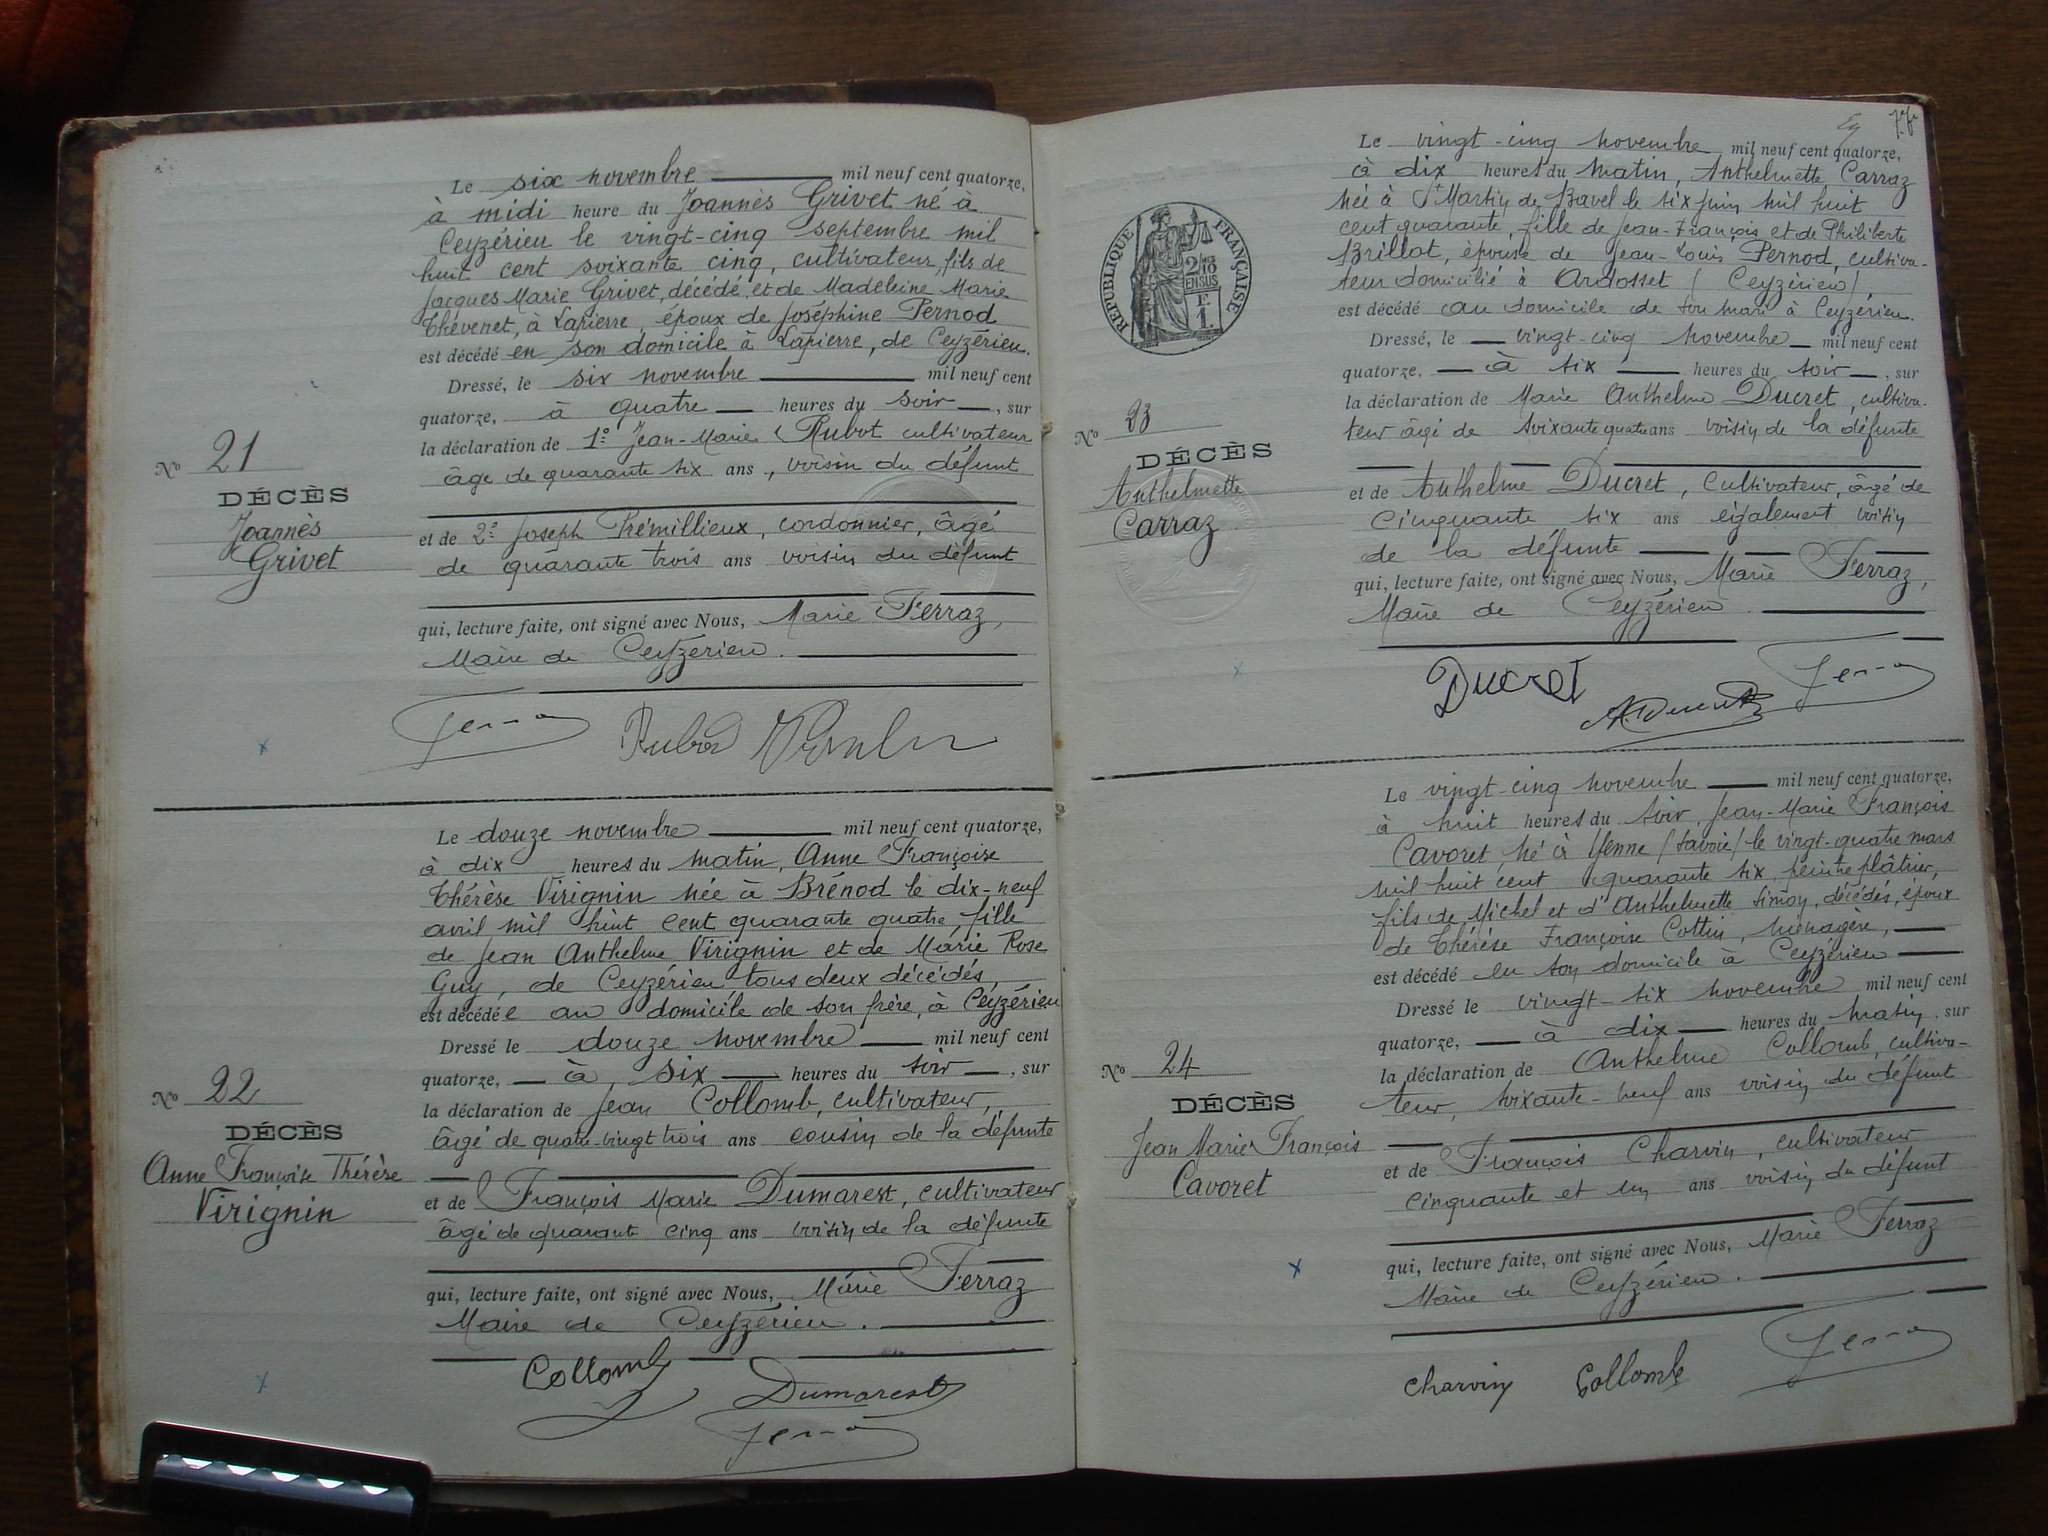 Le six novembre mil neuf cent quatorze,
à midi heure du Joannès Grivet né à
Ceyzérieu le vingt-cinq septembre mil
huit cent soixante cinq, cultivateur, fils de
Jacques Marie Grivet, décédé et de Madeleine Marie
Thévenet, à Lapierre, époux de Joséphine Pernod
est décédé en son domicile à Lapierre, de Ceyzérieu.
Dressé, le six novembre mil neuf cent
quatorze, à quatre heures du soir, sur
la déclaration de 1º Jean-Marie Rubot cultivateur
âgé de quarante six ans, voisin du défunt
et de 2º Joseph Prémillieux, cordonnier, âgé
de quarante trois ans voisin du défunt
qui, lecture faite, ont signé avec Nous, Marie Ferraz,
Maire de Ceyzérieu.
Nº 21
DÉCÈS
Joannès
Grivet
Le douze novembre mil neuf cent quatorze,
à dix heures du matin, Anne Françoise
Thérèse Virignin née à Brénod le dix-neuf
avril mil huit cent quarante quatre fille
de Jean Anthelme Virignin et de Marie Rose
Guy, de Ceyzérieu tous deux décédés,
est décédée au domicile de son frère, à Ceyzérieu
Dressé le douze novembre mil neuf cent
quatorze, à six heures du soir, sur
la déclaration de Jean Collomb, cultivateur,
âgé de quatre-vingt trois ans cousin de la défunte
et de François Marie Dumarest, cultivateur
âgé de quarante cinq ans voisin de la défunte
qui, lecture faite, ont signé avec Nous, Marie Ferraz
Maire de Ceyzérieu.
Collomb
Dumarest
Nº 22
DÉCÈS
Anne Françoise Thérèse
Virignin
RÉPUBLIQUE FRANÇAISE
2/10
EN SUS
1 F.
Le vingt-cinq novembre mil neuf cent quatorze,
à dix heures du matin, Anthelmette Carraz
née à St Martin de Bavel le six juin mil huit
cent quarante, fille de Jean-François et de Philiberte
Brillat, épouse de Jean-Louis Pernod, cultiva-
teur domicilié à Ardosset (Ceyzérieu)
est décédé au domicile de son mari à Ceyzérieu.
Dressé, le vingt-cinq novembre mil neuf cent
quatorze, à six heures du soir, sur
la déclaration de Marie Anthelme Ducret, cultiva-
teur âgé de soixante quatre ans voisin de la défunte
et de Anthelme Ducret, cultivateur, âgé de
cinquante six ans également voisin
de la défunte
qui, lecture faite, ont signé avec Nous, Marie Ferraz,
Maire de Ceyzérieu.
Ducret
Nº 23
DÉCÈS
Anthelmette
Carraz
Le vingt-cinq novembre mil neuf cent quatorze,
à huit heures du soir, Jean-Marie François
Cavoret, né à Yenne (Savoie) le vingt-quatre mars
mil huit cent quarante six, peintre plâtrier,
fils de Michel et d'Anthelmette Simon, décédés, époux
de Thérèse Françoise Cottin, ménagère,
est décédé en son domicile à Ceyzérieu
Dressé le vingt-six novembre mil neuf cent
quatorze, à dix heures du matin, sur
la déclaration de Anthelme Collomb, cultiva-
teur, soixante-neuf ans voisin du défunt
et de François Charvin, cultivateur
cinquante et un ans voisin du défunt
qui, lecture faite, ont signé avec Nous, Marie Ferraz
Maire de Ceyzérieu.
Charvin Collomb
Nº 24
DÉCÈS
Jean Marie François
Cavoret